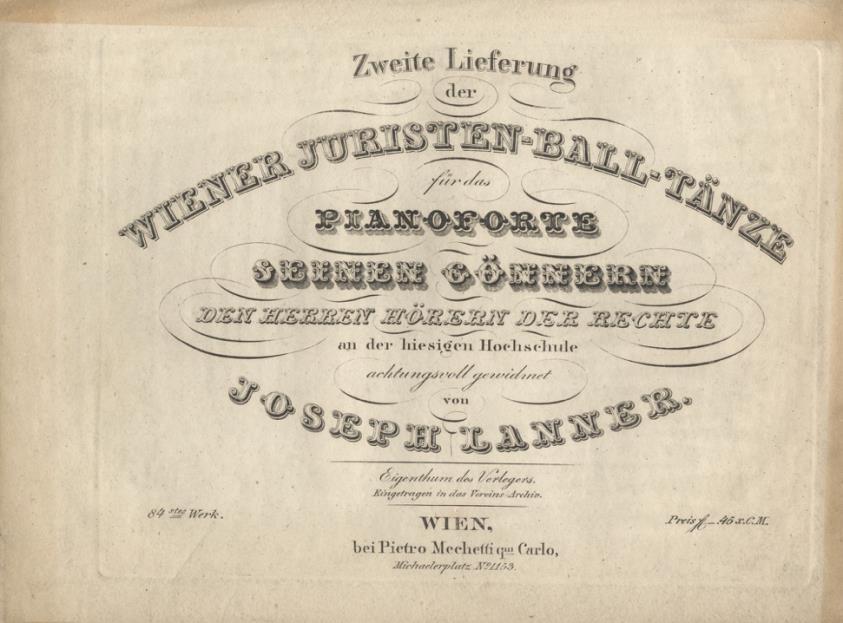 Zweite Lieferung
der
WIENER JURISTEN-BALL-TÄNZE
für das
PIANOFORTE
SEINEN GÖNNERN
DEN HERREN HÖRERN DER RECHTE
an der hiesigen Hochschule
achtungsvoll gewidmet
von
JOSEPH LANNER.
Eigenthum des Verlegers.
Eingetragen in das Vereins-Archiv.
84stes Werk.
Preis f_45 x.C.M.
WIEN,
bei Pietro Mechetti qm Carlo,
Michaelerplatz No 1153.